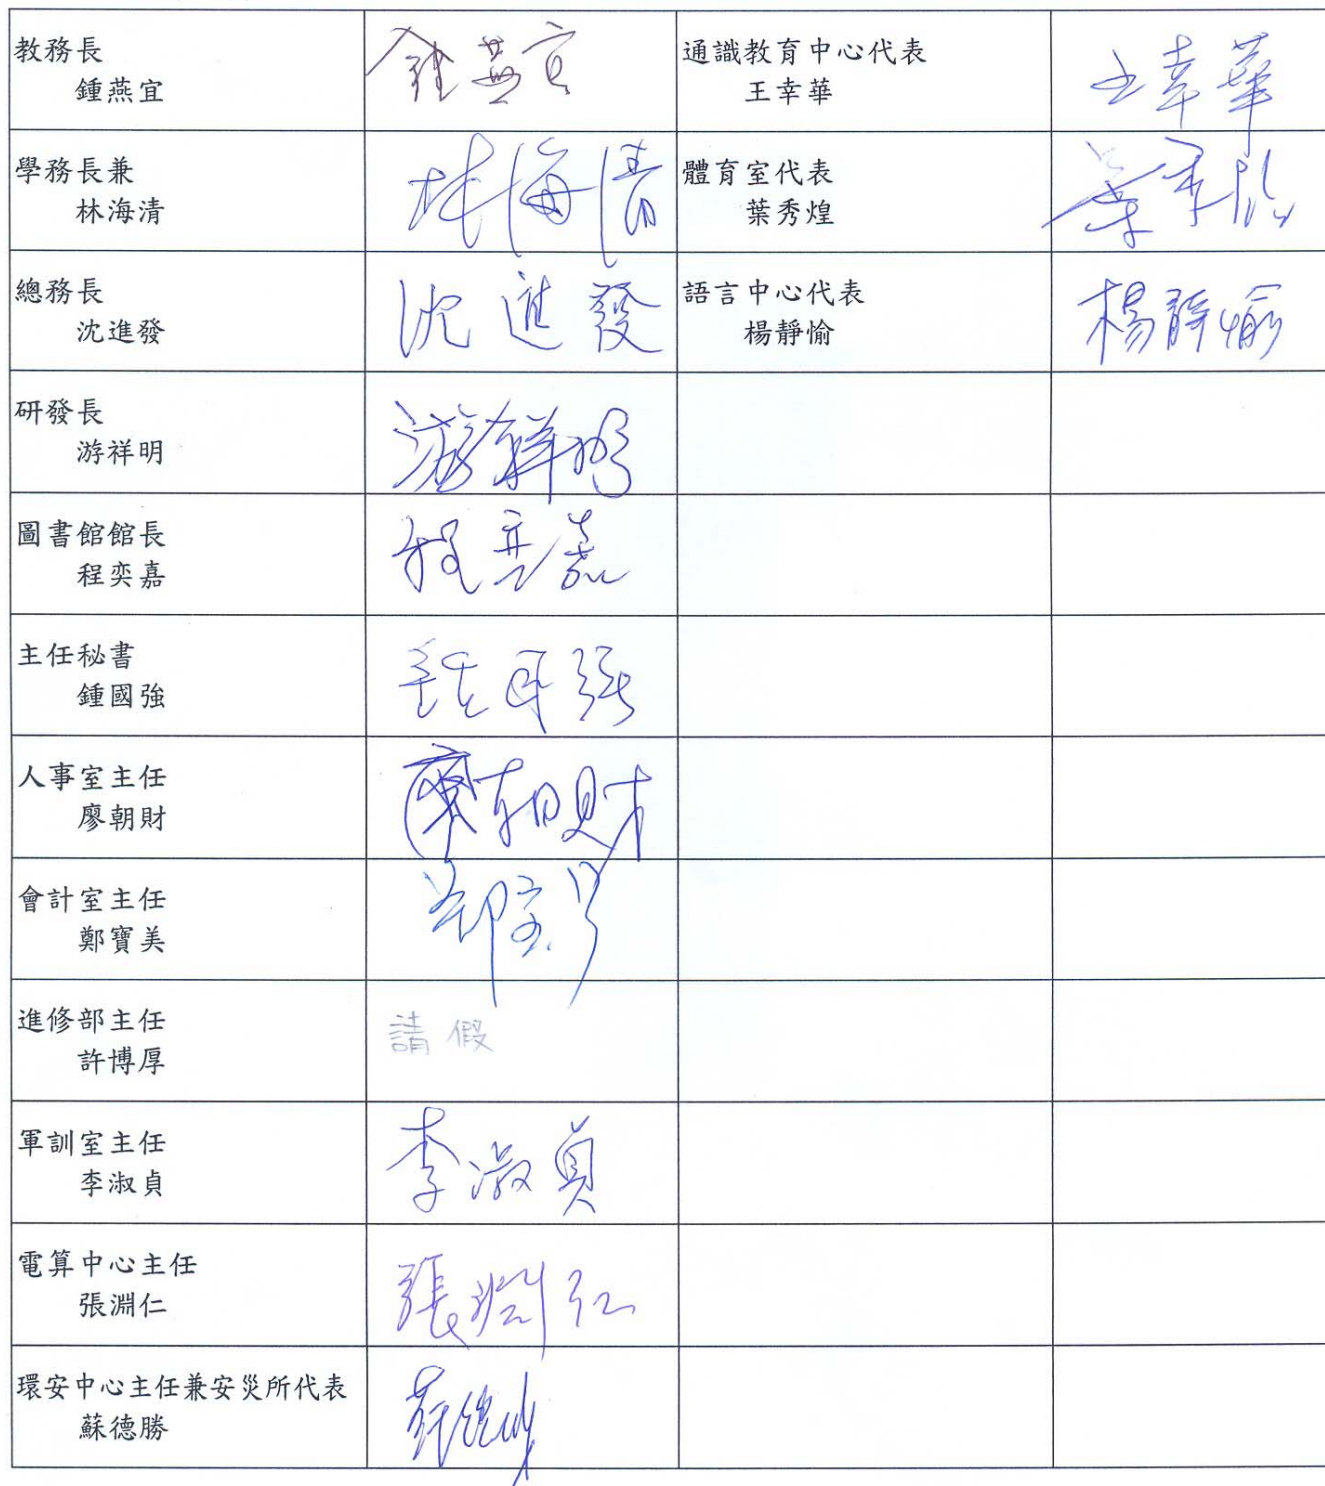 教務長
鍾燕宜
鍾燕宜
通識教育中心代表
王幸華
王幸華
學務長兼
林海清
林海清
體育室代表
葉秀煌
總務長
沈進發
沈進發
語言中心代表
楊靜愉
楊靜愉
研發長
游祥明
游祥明
圖書館館長
程奕嘉
程奕嘉
主任秘書
鍾國強
人事室主任
廖朝財
廖朝財
會計室主任
鄭寶美
進修部主任
許博厚
請假
軍訓室主任
李淑貞
李淑貞
電算中心主任
張淵仁
張淵仁
環安中心主任兼安災所代表
蘇德勝